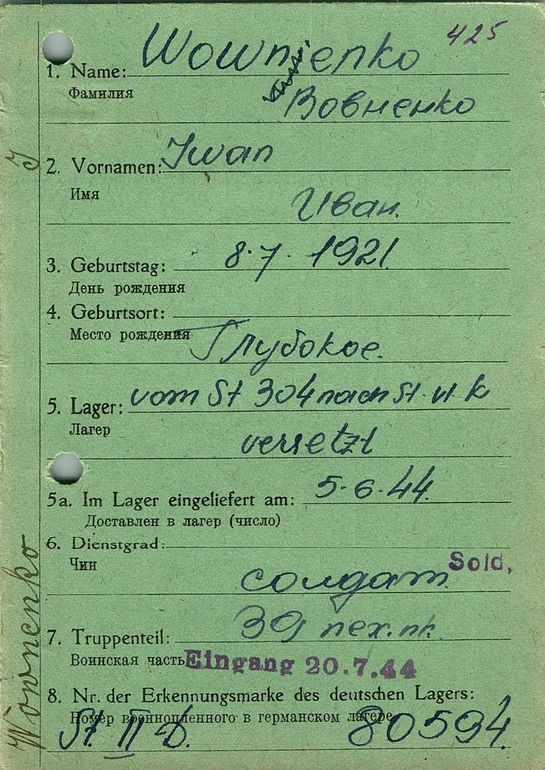 425
1. Name: Wownenko
Фамилия Вовненко
2. Vornamen: Iwan
Имя
Иван.
3. Geburtstag: 8.7.1921.
День рождения
4. Geburtsort:
Место рождения Глубокое.
5. Lager: vom St 304 nach St. VI. K
Лагер
versetzt
5a. Im Lager eingeliefert am: 5.6.44.
Доставлен в лагер (число)
6. Dienstgrad:
Чин солдат. Sold.
7. Truppenteil: 39 пех.
Воинская часть Eingang 20.7.44
8. Nr. der Erkennungsmarke des deutschen Lagers:
Номер военнопленного в германском лагере
St. II D. 80594.
Wownenko I